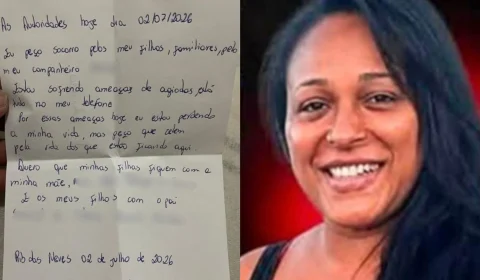 As Autoridades hoje dia 02/07/2026
Eu peço socorro pelos meu filhos, familiares, pelo
meu companheiro
Estou sofrendo ameaças de agiotas
no meu telefone
Por essas ameaças hoje eu estou perdendo
a minha vida, mas peço que zelem
pela vida dos que estão ficando aqui
Quero que minhas filhas fiquem com a
minha mãe,
E os meus filhos com o pai
Rib das Neves 02 de julho de 2026